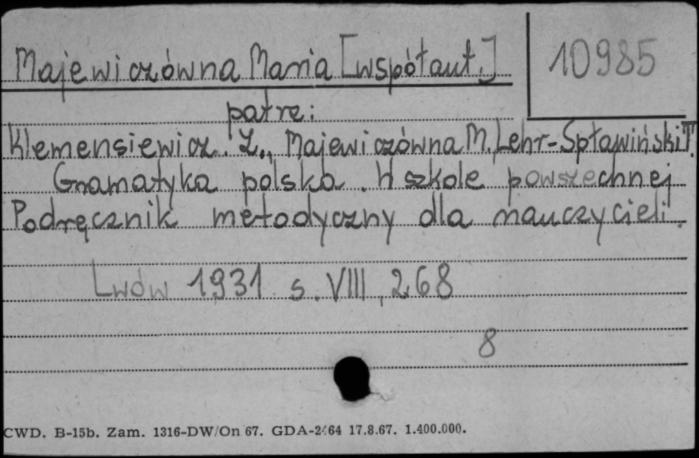 Majewiczówna Maria [współaut.]
10985
patrz:
Klemensiewicz. Z., Majewiczówna M. Lehr-Spławiński T.
Gramatyka polska. W szkole powszechnej
Podręcznik metodyczny dla nauczycieli.
Lwów 1931 s. VIII, 268
8
CWD. B-15b. Zam. 1316-DW/On 67. GDA-2/64 17.8.67. 1.400.000.